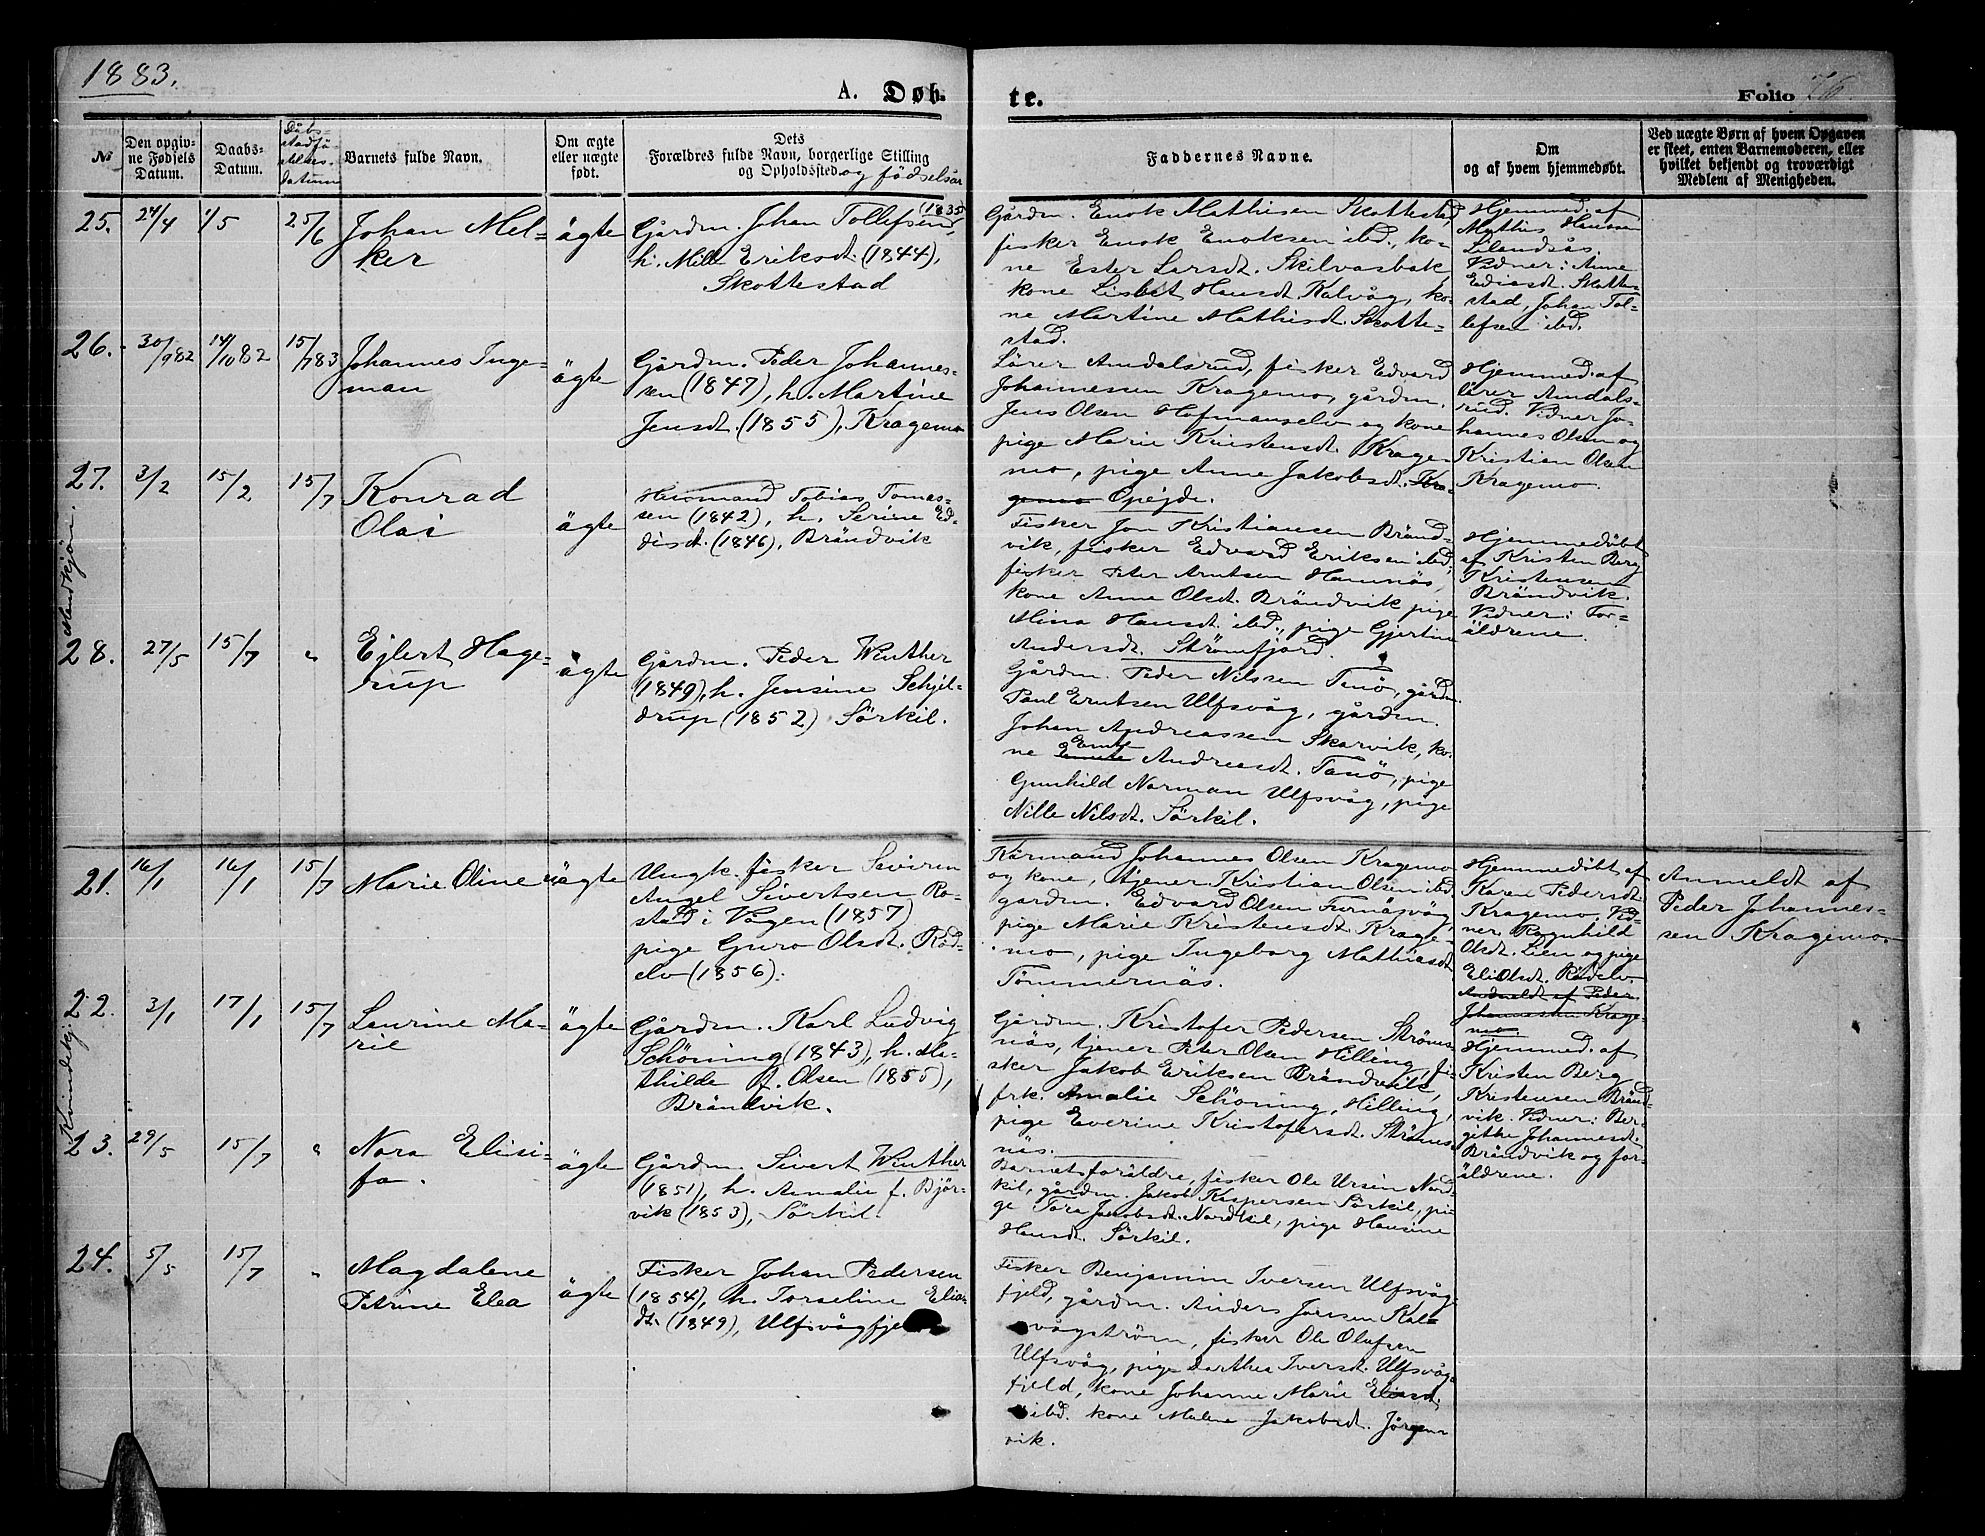 1883.
A. Døb-
te.
Folio 76
№
Den opgiv-
ne Fødsels
Datum.
Daabs-
Datum.
Dåbs-
stadfä-
stelses-
datum
Barnets fulde Navn.
Om ægte
eller uægte
født.
Dets
Forældres fulde Navn, borgerlige Stilling
og Opholdssted og fødselsår
Faddernes Navne.
Om
og af hvem hjemmedøbt.
Ved uægte Børn af hvem Opgaven
er skeet, enten Barnemoderen, eller
hvilket bekjendt og troværdigt
Medlem af Menigheden.
Mandkjön.
25.
24/4
1/5
25/6
Johan Mel-
ker
ägte
Gårdm. Johan Tollefsen (1835),
h. Mille Eriksdt. (1844),
Skottestad
Gårdm. Enok Mathisen Skottestad,
fisker Enok Enoksen ibd., ko-
ne Ester Larsdt. Skilvasbak,
kone Lisbet Hansdt. Kalvåg, ko-
ne Martine Mathisdt. Skotte-
stad.
Hjemmed. af
Mathis Hansen
Lilandsås.
Vidner: Anne
Ediasdt. Skotte-
stad, Johan Tol-
lefsen ibd.
26.
30/9 82
14/10 82
15/7 83
Johannes Inge-
man
ägte
Gårdm. Peder Johannes-
sen (1847), h. Martine
Jensdt. (1855), Kragemo
Lärer Amdalsrud, fisker Edvard
Johannessen Kragemo, gårdm.
Jens Olsen Hofmanselv og kone
pige Marie Kristensdt. Krage-
mo, pige Anne Jakobsdt. Kra-
gemo Opejde.
Hjemmed. af
lärer Amdals-
rud. Vidner Jo-
hannes Olsen og
Kristian Olsen
Kragemo.
27.
3/2
15/2
15/7
Konrad
Olai
ägte
Husmand Tobias Tomas-
sen (1842), h. Serine Ed-
disdt. (1846), Brändvik
Fisker Jon Kristiansen Bränd-
vik, fisker Edvard Eriksen ibd.
fisker Peter Arntsen Hamnäs,
kone Anne Olsdt. Brändvik pige
Mina Hansdt. ibd., pige Gjertine
Andersdt. Strömfjord.
Hjemmedöbt
af Kristen Berg
Kristensen
Brändvik.
Vidner: For-
äldrene.
28.
27/5
15/7
"
Ejlert Hage-
rup
ägte
Gårdm. Peder Winther
(1849), h. Jensine Schjel-
drup (1852) Sörkil.
Gårdm. Peder Nilssen Tanö, gårdm.
Paul Erntsen Ulfsvåg, gårdm.
Johan Andreassen Skarvik, ko-
ne Andreasdt. Tanö, pige
Gunhild Norman Ulfsvåg, pige
Nille Nilsdt. Sörkil.
Kvindekj.
21.
16/1
16/1
15/7
Marie Oline
uägte
Ungk. fisker Seviren
Angel Sivertsen Ro-
stad i Vågen (1857)
pige Guro Olsdt. Röd-
elv (1856).
Kårmand Johannes Olsen Kragemo
og kone, tjener Kristian Olsen ibd.
gårdm. Edvard Olsen Furnäsvåg,
pige Marie Kristensdt Krage-
mo, pige Ingeborg Mathiasdt
Tömmernäs.
Hjemmedöbt af
Karen Pedersdt
Kragemo, Vid-
ner, Ragnhild
Olsdt. Lien og pige
Eli Olsdt. Rödelv.
Anmeldt af Peder
Johannessen Krage-
mo.
Anmeldt af
Peder Johannes-
sen Kragemo.
22.
3/1
17/1
15/7
Laurine Ma-
rie
ägte
Gårdm. Karl Ludvig
Schöning (1843), h. Ma-
thilde f. Olsen (1855),
Brändvik.
Gårdm. Kristofer Pedersen Ströms-
näs, tjener Peter Olsen Hilling, fi-
sker Jakob Eriksen Brändvik,
frk. Amalie Schöning, Hilling,
pige Everine Kristofersdt. Ströms-
näs.
Hjemmed. af
Kristen Berg
Kristensen Bränd-
vik. Vidner: Ber-
gitte Johannesdt.
Brändvik og for-
äldrene.
23.
29/5
15/7
"
Nora Elisi-
fa.
ägte
Gårdm. Sivert Winther
(1851), h. Amalie f. Björ-
vik (1853), Sörkil.
Barnets foräldre, fisker Ole Ursin Nord-
kil, gårdm. Jakob Kaspersen Sörkil, pi-
ge Tora Jacobsdt. Nordkil, pige Hansine
Hansdt. Sörkil.
24.
5/5
15/7
"
Magdalene
Petrine Elea
ägte
Fisker Johan Pedersen
(1854), h. Torseline Elias-
dt. (1849), Ulfsvågfje
Fisker Benjamin Iversen Ulfsvåg-
fjeld, gårdm. Anders Jensen Kal-
vågström, fisker Ole Olufsen
Ulfsvåg, pige Dorthea Iversdt. Ulfsvåg-
fjeld, kone Johanne Marie Eliasdt.
ibd. kone Malene Jakobsdt. Jörgens-
vik.